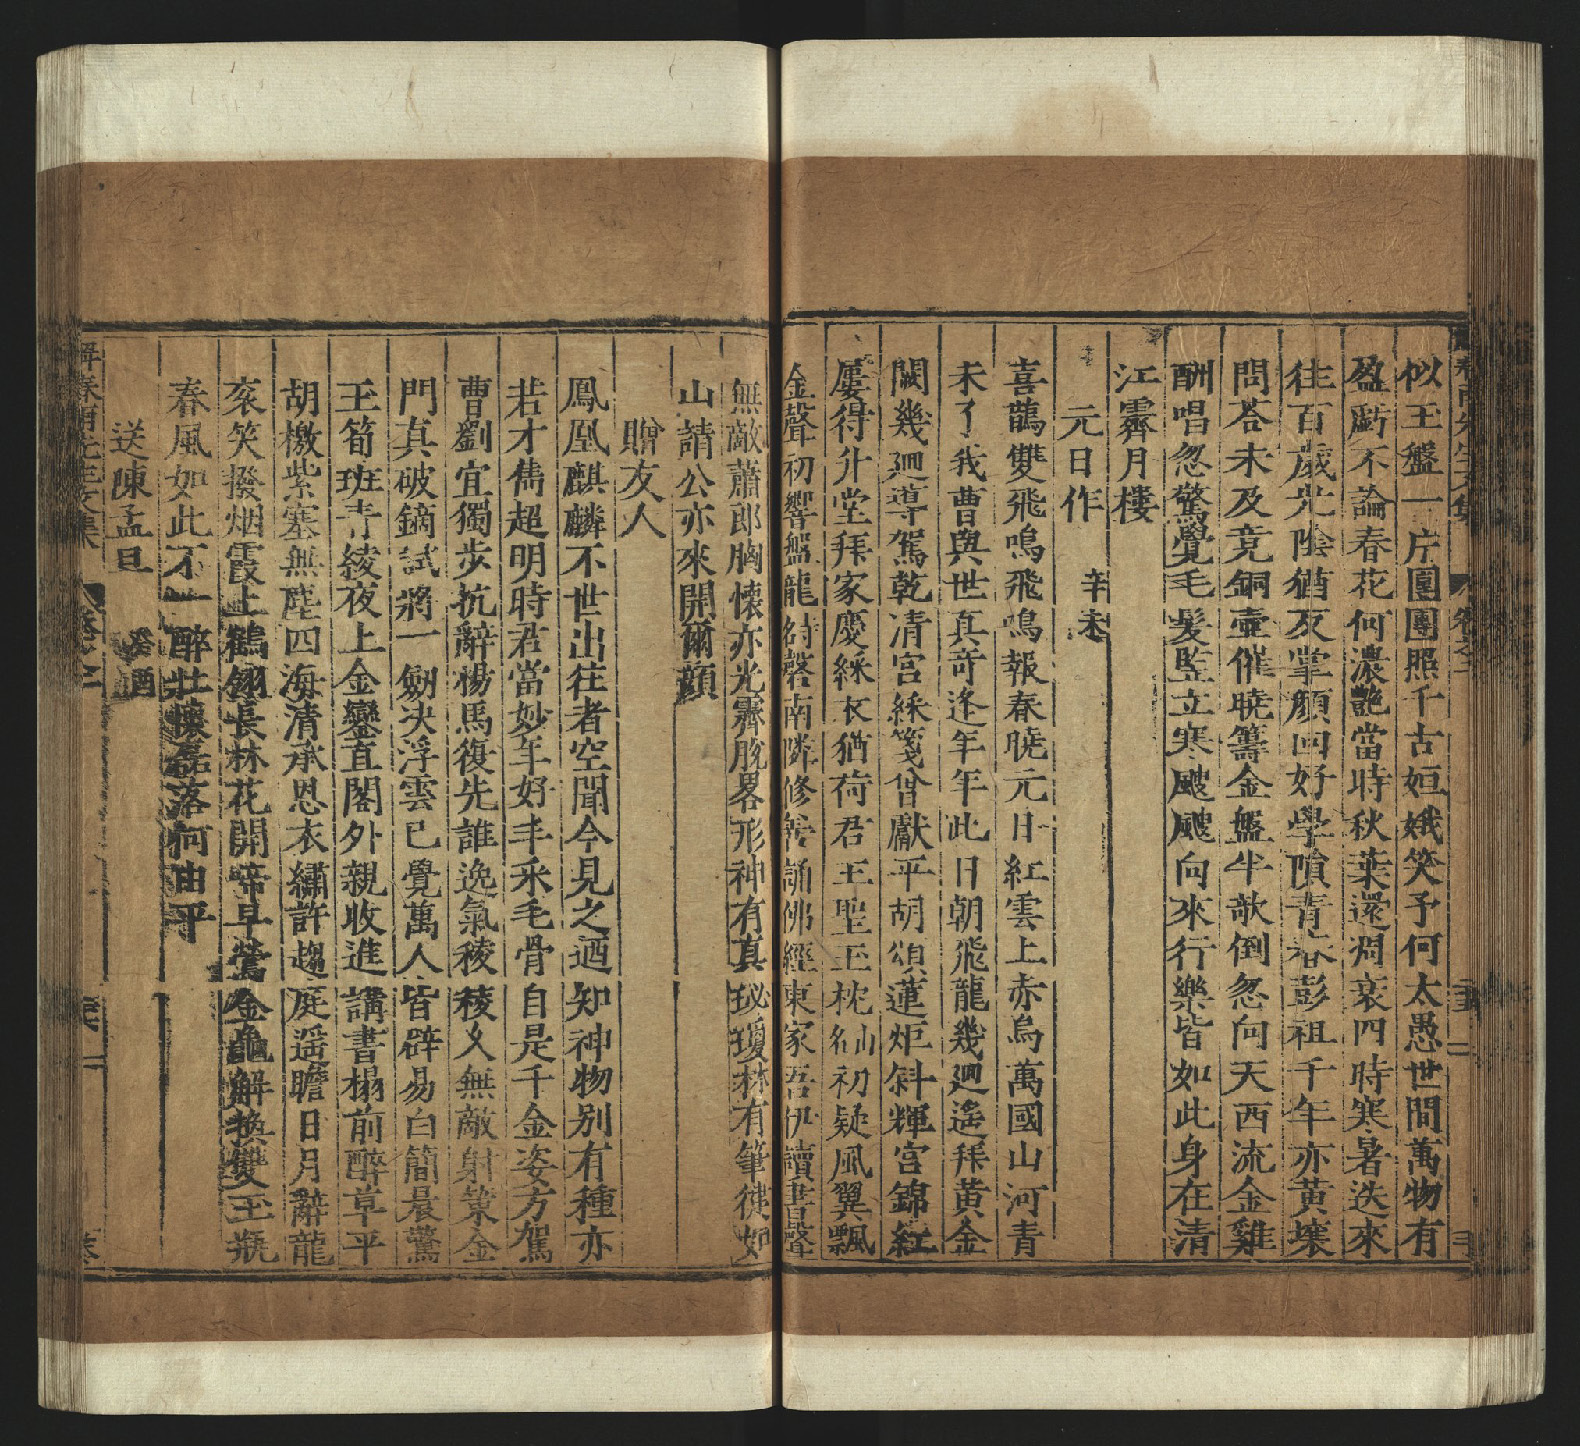 似玉盤一片團團照千古姮娥笑予何太愚世間萬物有
盈虧不論春花何濃艷當時秋葉還凋衰四時寒暑迭來
往百歲光陰猶反掌顏回好學隕青春彭祖千年亦黃壤
問荅未及竟銅壺催曉籌金盤半欹倒忽向天西流金雞
酬唱忽驚覺毛髪竪立寒颼颼向來行樂皆如此身在清
江霽月樓
元日作 辛未
喜鵲雙飛鳴飛鳴報春曉元日紅雲上赤烏萬國山河青
未了我曹與世真竒逢年年此日朝飛龍幾迴遙拜黃金
闕幾迴導駕乾清宮綵箋曾獻平胡頌蓮炬斜輝宮錦紅
屢得升堂拜家慶綵衣猶荷君王聖玉枕仙初疑風翼飄
金聲初響盤龍 磬南隣修善誦佛經東家吾伊讀書聲
無敵蕭郎胸懷亦光霽脫畧形神有真 瓊林有筆健如
山請公亦來開爾顔
贈友人
鳳凰麒麟不世出往者空聞今見之迺知神物别有種亦
若才雋超明時君當妙年好丰采毛骨自是千金姿方駕
曹劉宜獨步抗辭楊馬復先誰逸氣稜稜又無敵射策金
門真破鏑試將一劒決浮雲已覺萬人皆辟易白簡晨驚
玉筍班青綾夜上金鑾直閣外親收進講書榻前醉草平
胡檄紫塞無塵四海清承恩衣繡許趨庭遥瞻日月辭龍
袞笑撥烟霞上鶴翎長林花開啼早鶯金龜解換雙玉瓶
春風如此不一醉壯懷磊落何由平
送陳孟旦 癸酉